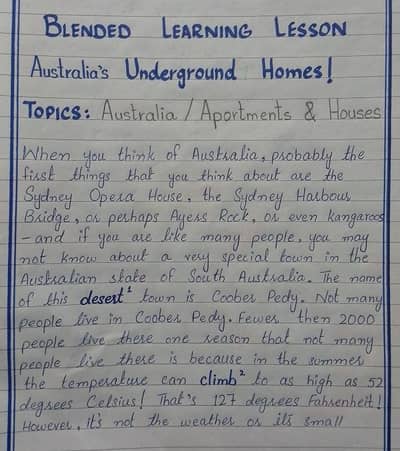 BLENDED LEARNING LESSON
Australia's Underground Homes!
TOPICS: Australia / Apartments & Houses
When you think of Australia, probably the
first things that you think about are the
Sydney Opera House, the Sydney Harbour
Bridge, or perhaps Ayers Rock, or even kangaroos
- and if you are like many people, you may
not know about a very special town in the
Australian state of South Australia. The name
of this desert¹ town is Coober Pedy. Not many
people live in Coober Pedy. Fewer then 2000
people live there one reason that not many
people live there is because in the summer
the temperature can climb² to as high as 52
degrees Celsius! That's 127 degrees Fahrenheit!
However, it's not the weather or its small